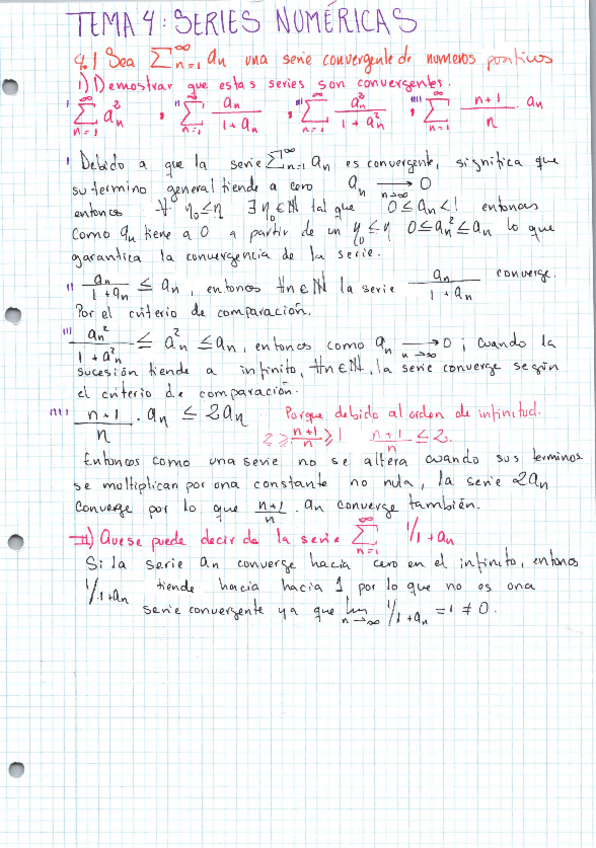 TEMA 4: SERIES NUMÉRICAS
4.1 Sea ∑_{n=1}^∞ a_n una serie convergente de numeros positivos
i) Demostrar que estas series son convergentes.
' ∑_{n=1}^∞ a_n^2 , '' ∑_{n=1}^∞ a_n/(1+a_n) , ''' ∑_{n=1}^∞ a_n^2/(1+a_n^2) , '''' ∑_{n=1}^∞ (n+1)/n · a_n
' Debido a que la serie ∑_{n=1}^∞ a_n es convergente, significa que
su termino general tiende a cero a_n ⟶_{n→∞} 0
entonces ∀ n_0≤n ∃ n_0∈ℕ tal que 0≤a_n<1 entonces
Como a_n tiene a 0 a partir de un n_0≤n 0≤a_n^2≤a_n lo que
garantica la convergencia de la serie.
'' a_n/(1+a_n) ≤ a_n, entonces ∀n∈ℕ la serie a_n/(1+a_n) converge.
Por el criterio de comparación.
''' a_n^2/(1+a_n^2) ≤ a_n^2 ≤ a_n, entonces como a_n ⟶_{n→∞} 0 ; cuando la
sucesión tiende a infinito, ∀n∈ℕ, la serie converge según
el criterio de comparación.
'''' (n+1)/n · a_n ≤ 2a_n Porque debido al orden de infinitud.
2 ≥ (n+1)/n ≥ 1 (n+1)/n ≤ 2.
Entonces como una serie no se altera cuando sus terminos
se moltiplican por una constante no nula, la serie 2a_n
converge por lo que (n+1)/n · a_n converge también.
ii) Que se puede decir de la serie ∑_{n=1}^∞ 1/1+a_n
Si la serie a_n converge hacia cero en el infinito, entones
1/1+a_n tiende hacia hacia 1 por lo que no es una
serie convergente ya que lim_{n→∞} 1/1+a_n = 1 ≠ 0.